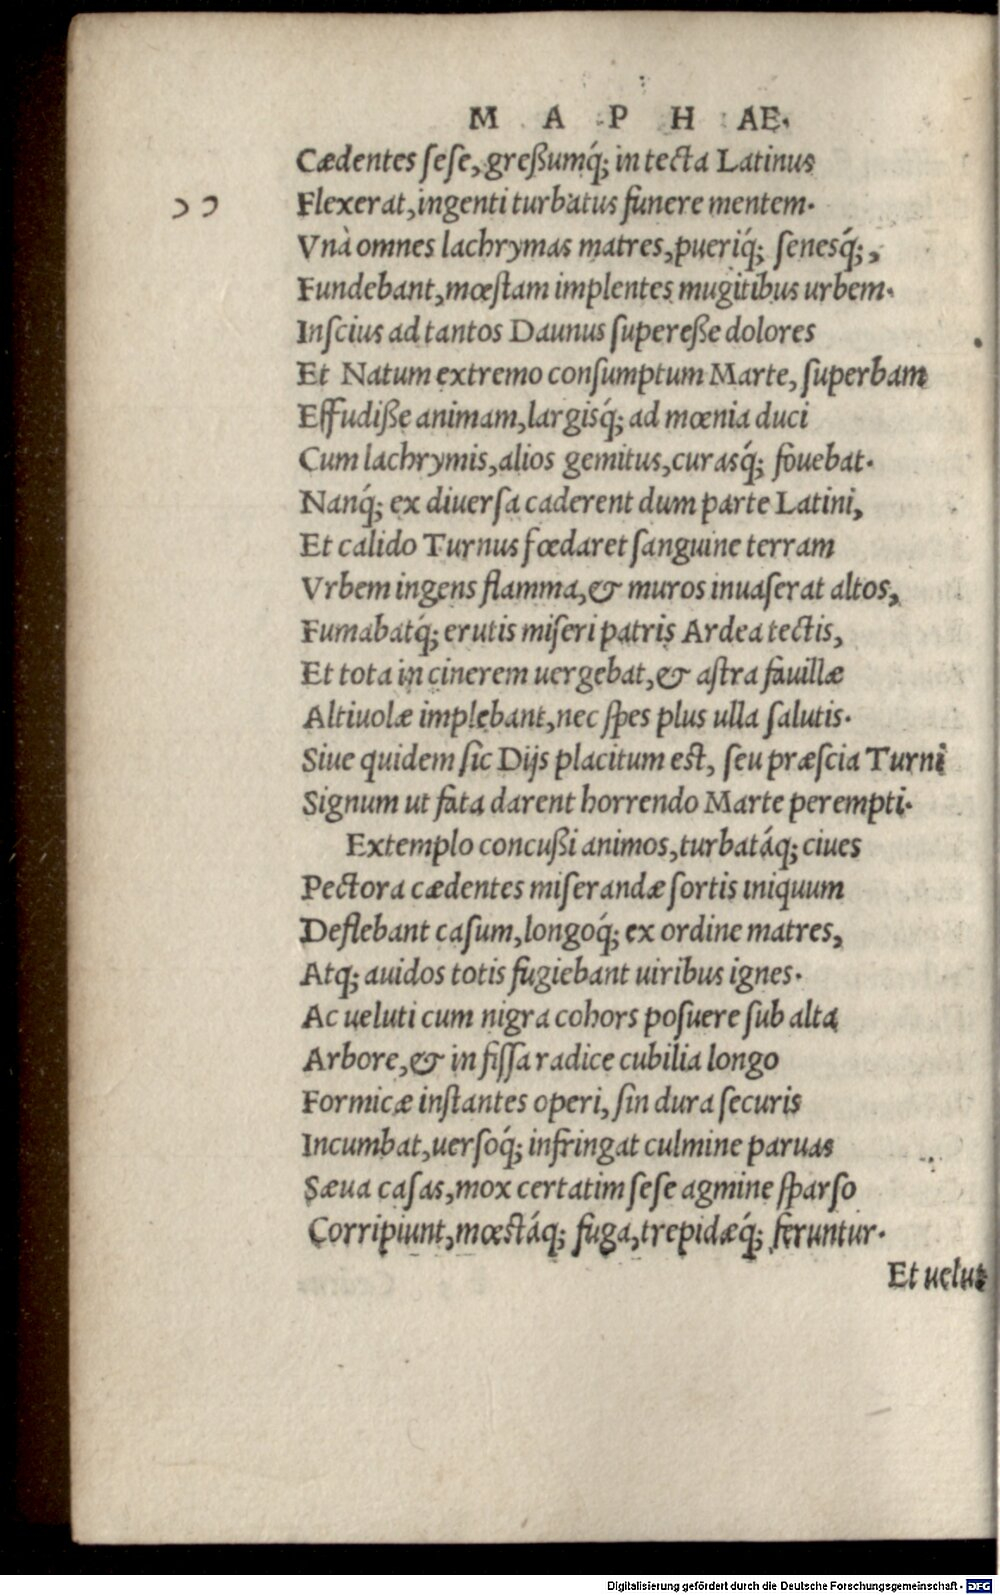 M A P H AE.
Cædentes sese, greßumq́; in tecta Latinus
Flexerat, ingenti turbatus funere mentem.
Vnà omnes lachrymas matres, pueriq́; senesq́;,
Fundebant, mœstam implentes mugitibus urbem.
Inscius ad tantos Daunus supereße dolores
Et Natum extremo consumptum Marte, superbam
Effudiße animam, largisq́; ad mœnia duci
Cum lachrymis, alios gemitus, curasq́; fouebat.
Nanq́; ex diuersa caderent dum parte Latini,
Et calido Turnus fœdaret sanguine terram
Vrbem ingens flamma, & muros inuaserat altos,
Fumabatq́; erutis miseri patris Ardea tectis,
Et tota in cinerem uergebat, & astra fauillæ
Altiuolæ implebant, nec spes plus ulla salutis.
Siue quidem sic Dijs placitum est, seu præscia Turni
Signum ut fata darent horrendo Marte perempti.
Extemplo concußi animos, turbatáq; ciues
Pectora cædentes miserandæ sortis iniquum
Deflebant casum, longoq́; ex ordine matres,
Atq; auidos totis fugiebant uiribus ignes.
Ac ueluti cum nigra cohors posuere sub alta
Arbore, & in fissa radice cubilia longo
Formicæ instantes operi, sin dura securis
Incumbat, uersoq́; infringat culmine paruas
Sæua casas, mox certatim sese agmine sparso
Corripiunt, mœstáq; fuga, trepidæq́; feruntur.
Et uelut
Digitalisierung gefördert durch die Deutsche Forschungsgemeinschaft - DFG